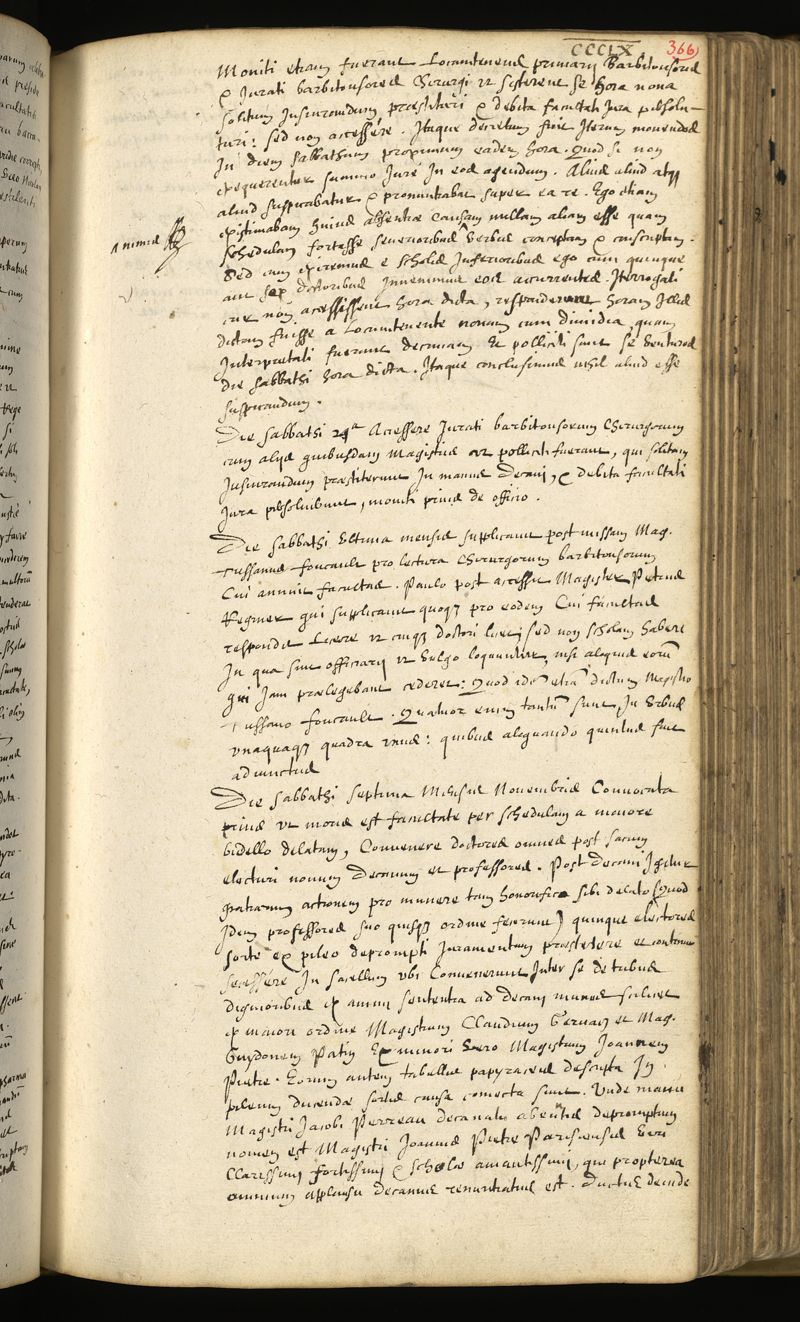 CCCLX. 366
Moniti etiam fuerant Locumtenens primarij Barbitonsoris
& Jurati barbitonsores Chirurgi ut sisterent se hora nona
solitum Jusiurandum praestituri & debita facultati Jura persolu-
turi: sed non accessére. Itaque decretum fuit Iterum monendos
In diem sabbathum proximum eadem hora. Quod si non
exequerentur summo Jure In eos agendum. Aliud aliud atq3
aliud suspicabatur & pronuntiabat super ea re. Ego etiam
existimabam huius absentiae causam nullam aliam esse quam
schedulam fortasse severioribus verbis conceptam & conscriptam.
Animus
Sed cum exiremus e scholis Inferioribus ego cum quinque
aut sex doctoribus Invenimus eos accurrentes. Iterrogati
cur non accessissent hora dicta, responderunt horam Illis
dictam fuisse a Locumtenente nonam cum dimidia, quam
Interpretati fuerant decimam & polliciti sunt se venturos
die sabbathi hora dicta. Itaque conclusimus nihil aliud esse
suspicandum.
Die sabbathi 24a Accessere Jurati barbitonsorum Chirurgorum
cum alijs quibusdam Magistris ut polliciti fuerant, qui solitum
Jusiurandum praestiterunt In manus Decani, & debita facultati
Jura persolverunt, moniti prius de officio.
Die sabbathi Ultima mensis supplicavit post missam Mag.
Tussanus Foucault pro lectura Chirurgorum barbitonsorum
Cui annuit facultas. Paulo post accessit Magister Petrus
Regnier qui supplicavit quoq3 pro eodem Cui facultas
respondit Licere ut cuiq3 doctori licet, sed non scholam habere
In qua sint officiarij ut vulgo loquuntur, nisi aliquis eorum
qui Jam praelegebant cederet: Quod idem etiam dictum Magistro
Tussano Foucault. Quatuor enim tantum sunt, In Urbis
unaquaq3 quadra unus: quibus aliquando quintus fuit
adiunctus
Die sabbathi septima Mensis Novembris Convocata
prius ut moris est facultate per schedulam a maiore
bidello delatam, Convenere doctores omnes post sacrum
electuri novum Decanum et professores. Post decani Igitur
gratiarum actionem pro munere tam honorifico sibi delato (Quod
Idem professores suo quisq3 ordine fecerunt) quinque electores
sorte ex pileo deprompti Juramentum praestitere et continuo
secessére In sacellum ubi Convenerunt Inter se de tribus
dignioribus ex animi sententia ad decani munus scilicet
ex maiori ordine Magistrum Claudium Gervais et Mag.
Guydonem Patin Ex minori vero Magistrum Joannem
Pietre. Eorum autem tabellae papyraceis descripta In
pileum ducendae sortis causa coniecta sunt. Unde manu
Magistri Jacobi Perreau decanatu abeuntis depromptum
nomen est Magistri Joannis Pietre Parisiensis Viri
Clarissimi fortissimi & scholae amantissimi, qui propterea
omnium applausu decanus renuntiatus est. Ductus deinde